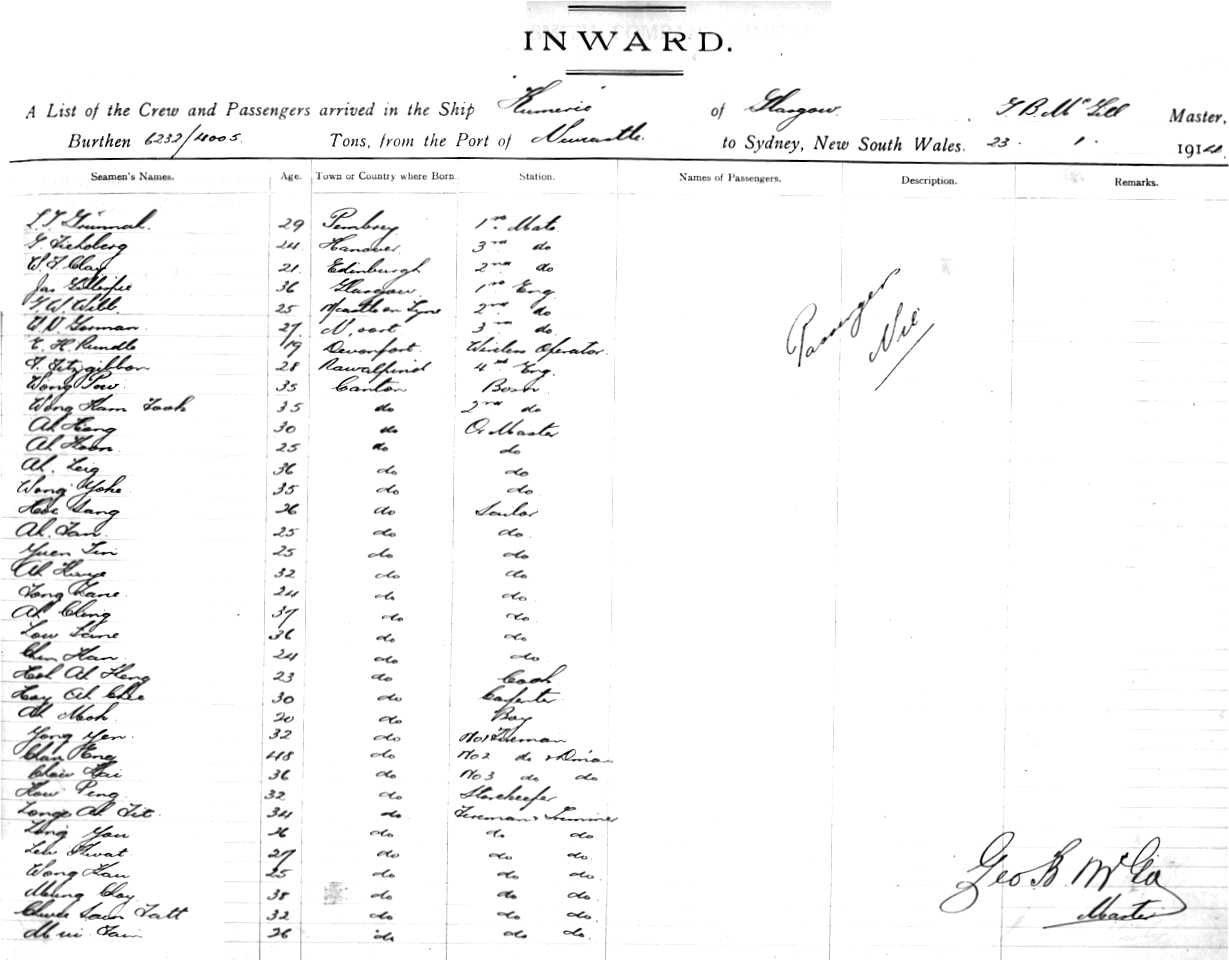 INWARD.
A List of the Crew and Passengers arrived in the Ship Kumeric of Glasgow. Master,
Burthen 6232/4005. Tons, from the Port of Newcastle. to Sydney, New South Wales. 23. 1. 1914.
Seamen's Names. Age. Town or Country where Born. Station. Names of Passengers. Description. Remarks.
29 Pembrey 1st Mate
24 Hanover 3rd do
W. F. Clay 21 Edinburgh 2nd do
Jas Gillespie 36 Glasgow 1st Eng
F. W. Will 25 2nd do
Gorman 27 3rd do
E. H. Rundle 19 Devonport Wireless Operator
F. Fitzgibbon 28 Rawalpindi 4th Eng.
Wong Pow 35 Canton Bosn
Wong Kam Took 35 do 2nd do
Ah Heng 30 do Qr Master
Ah Hoon 25 do do
Ah. Leig 36 do do
Wong Yoke 35 do do
Sang 26 do Sailor
Ah. Tan 25 do do
Yuen Tin 25 do do
Ah 32 do do
Tong Kane 24 do do
Ah Ching 37 do do
Low 36 do do
Chin Han 24 do do
Hoh Ah Heng 23 do Cook
Hay Ah Chee 30 do Carpenter
Ah Moh 20 do Boy
Yong Yen 32 do No 1 Fireman
Chan Eng 48 do No 2 do & D'man
Hai 36 do No 3 do do
How Peng 32 do Storekeeper
Ah Fit 34 do Fireman & Trimmer
Long You 26 do do do
Lew 27 do do do
Wong Kau 25 do do do
38 do do do
32 do do do
26 do do do.
Passenger
Nil
Geo B
Master